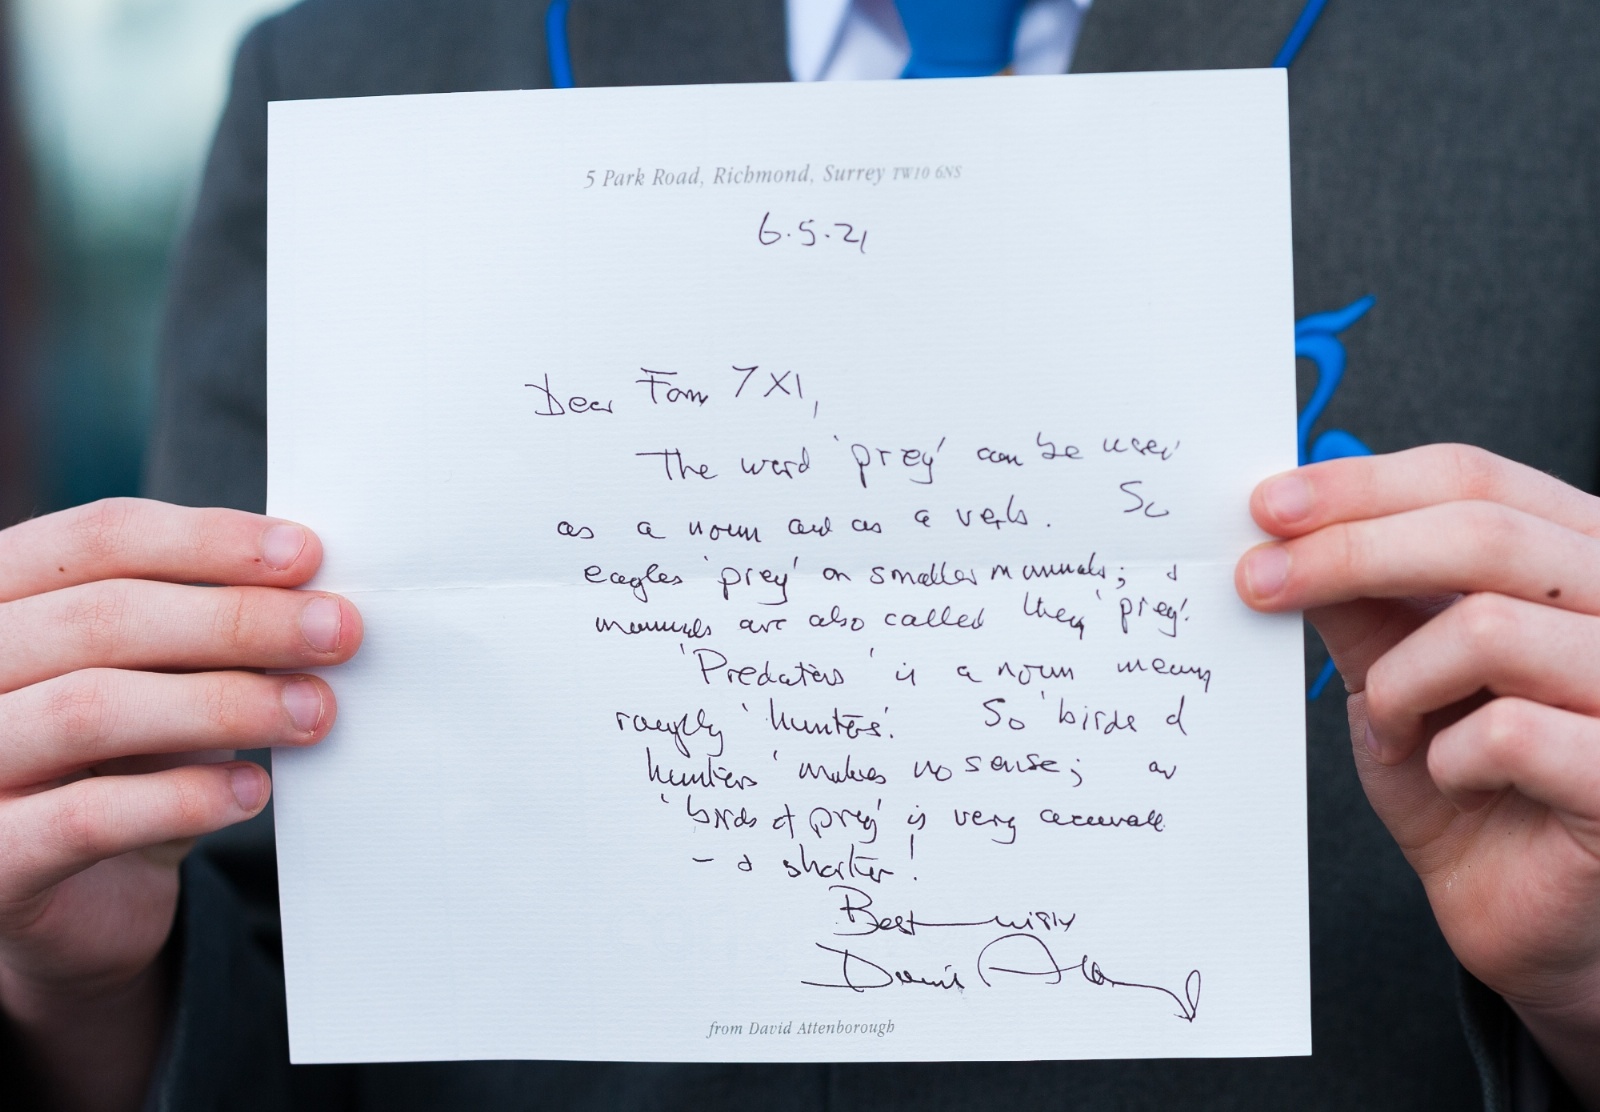 5 Park Road, Richmond, Surrey TW10 6NS
6.5.21
Dear Form 7X1,
The word 'prey' can be used
as a noun and as a verb. So
eagles 'prey' on smaller mammals; &
mammals are also called they 'prey'.
'Predators' is a noun meaning
roughly 'hunters'. So 'birds of
hunters' makes no sense;
'birds of prey' is very accurate
- & shorter!
Best wishes
David Attenborough
from David Attenborough